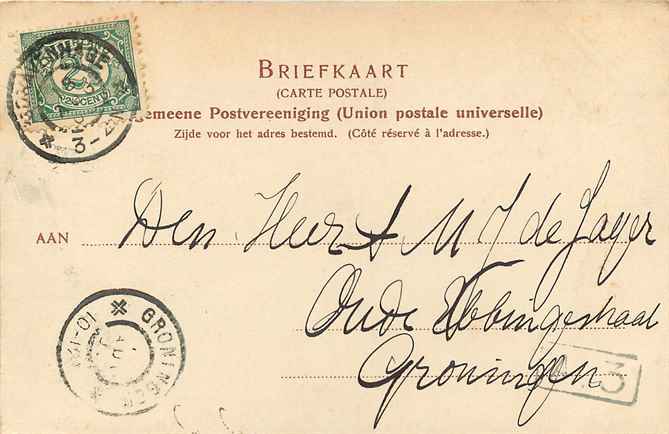 BRIEFKAART
(CARTE POSTALE)
gemeene Postvereeniging (Union postale universelle)
Zijde voor het adres bestemd. (Côté réservé à l'adresse.)
2½ CENT
3-
AAN Den Heer A M J de Jager
Oude Ebbingestraat
Groningen
GRONINGEN
10-12V